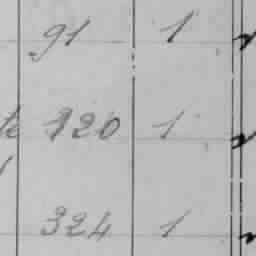 91 1
320 1
324 1